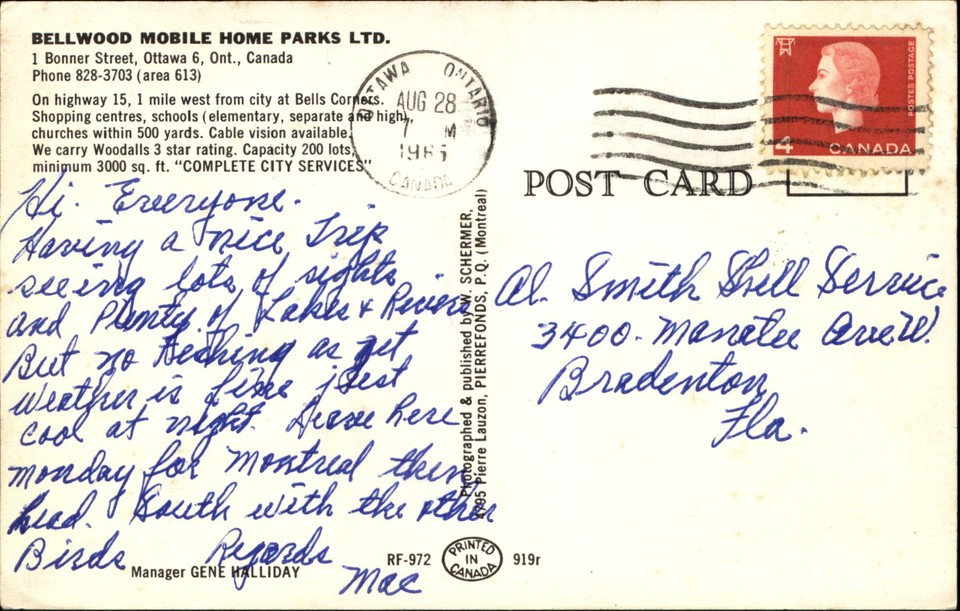 BELLWOOD MOBILE HOME PARKS LTD.
1 Bonner Street, Ottawa 6, Ont., Canada
Phone 828-3703 (area 613)
On highway 15, 1 mile west from city at Bells Corners.
Shopping centres, schools (elementary, separate and high),
churches within 500 yards. Cable vision available.
We carry Woodalls 3 star rating. Capacity 200 lots,
minimum 3000 sq. ft. "COMPLETE CITY SERVICES"
Hi. Everyone.
Having a nice Trip
seeing lots of sights
and Plenty of Lakes & Rivers
But no Feching as yet
Weather is fine just
cool at night. Leave here
monday for Montreal then
head. South with the other
Birds Regards
Mac
Manager GENE HALLIDAY
OTTAWA ONTARIO
AUG 28
7 M
196
CANADA
Photographed & published by W. SCHERMER,
4795 Pierre Lauzon, PIERREFONDS, P.Q. (Montreal)
RF-972
PRINTED
IN
CANADA
919r
POSTES POSTAGE
4 CANADA
POST CARD
Al. Smith Shell Service
3400. Manatee Ave W.
Bradenton
Fla.